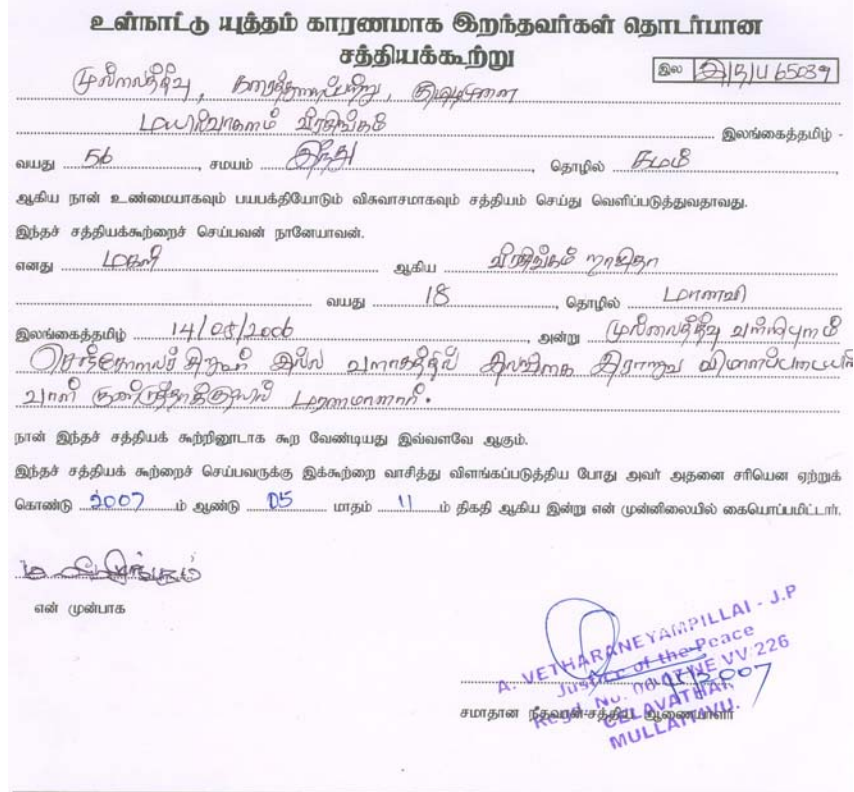 உள்நாட்டு யுத்தம் காரணமாக இறந்தவர்கள் தொடர்பான
சத்தியக்கூற்று
இல இ/த/ப 65039
முல்லைத்தீவு, கரைத்துறைப்பற்று,
மயில்வாகனம் வீரசிங்கம் இலங்கைத்தமிழ் -
வயது 56, சமயம் இந்து, தொழில் கமம்
ஆகிய நான் உண்மையாகவும் பயபக்தியோடும் விசுவாசமாகவும் சத்தியம் செய்து வெளிப்படுத்துவதாவது.
இந்தச் சத்தியக்கூற்றைச் செய்பவன் நானேயாவன்.
எனது மகள் ஆகிய வீரசிங்கம் ராஜிதா
வயது 18, தொழில் மாணவி
இலங்கைத்தமிழ் 14/08/2006, அன்று முல்லைத்தீவு வள்ளிபுனம்
செந்தோளர் சிறுவர் இல்ல வளாகத்தில் இலங்கை இராணுவ விமானப்படையின்
வான் குண்டுத்தாக்குதலில் மரணமானார்.
நான் இந்தச் சத்தியக் கூற்றினூடாக கூற வேண்டியது இவ்வளவே ஆகும்.
இந்தச் சத்தியக் கூற்றைச் செய்பவருக்கு இக்கூற்றை வாசித்து விளங்கப்படுத்திய போது அவர் அதனை சரியென ஏற்றுக்
கொண்டு 2007 ம் ஆண்டு 05 மாதம் 11 ம் திகதி ஆகிய இன்று என் முன்னிலையில் கையொப்பமிட்டார்.
என் முன்பாக
A. VETHARANEYAMPILLAI - J.P
Justice of the Peace
Regd. No. NE VV 226
MULLAITIVU.
சமாதான நீதவான்-சத்திய ஆணையாளர்